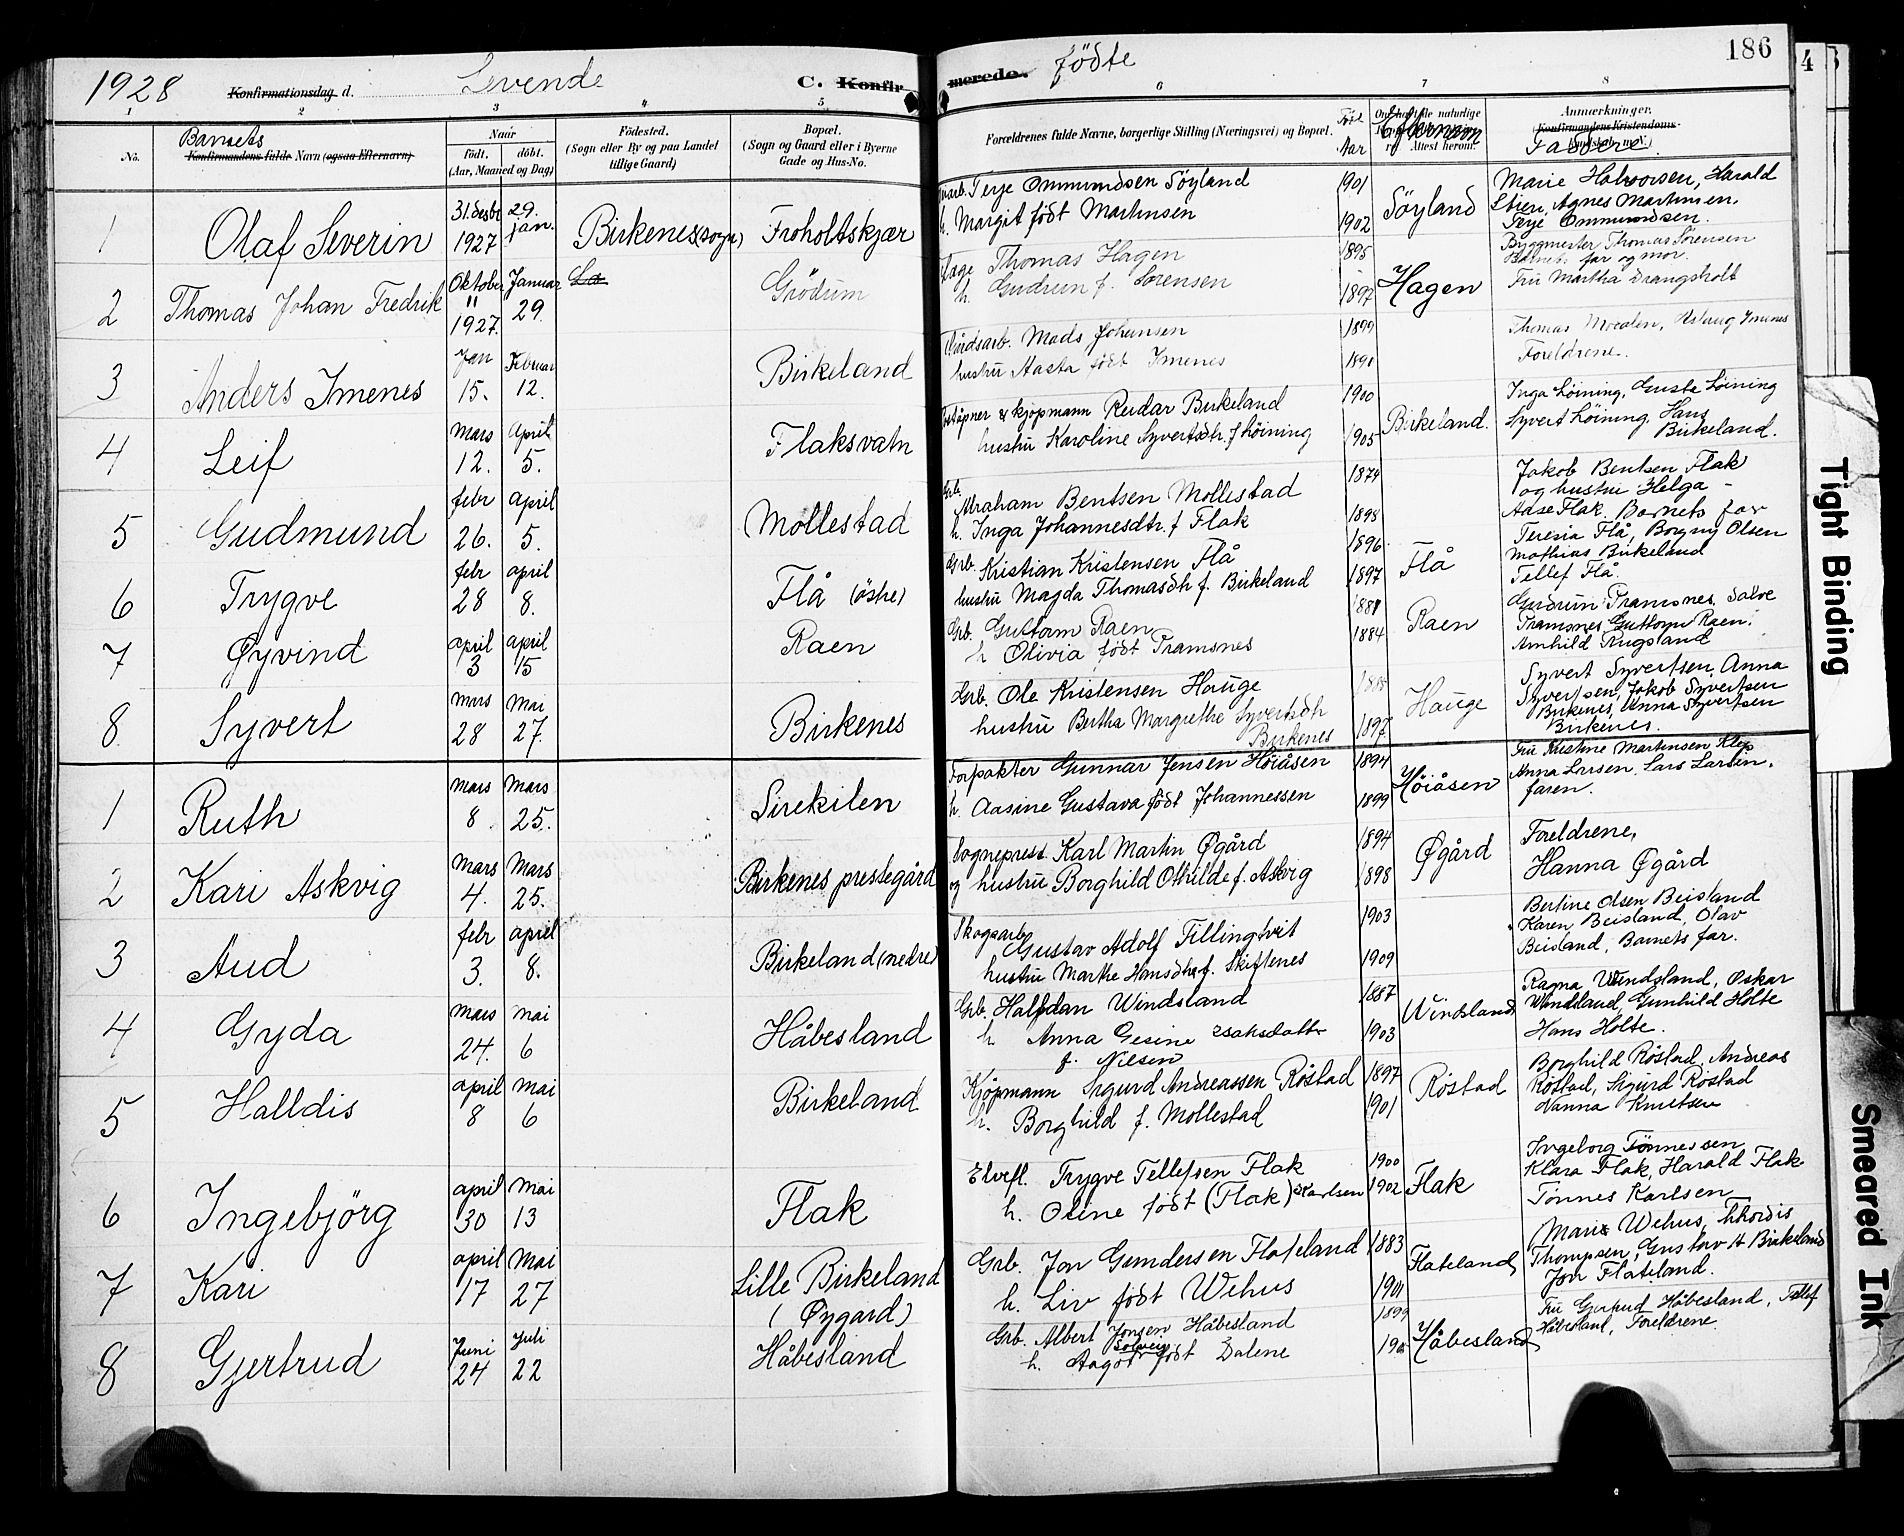 1928 Konfirmationsdag d. Levende C. Konfirmerede. födte 186
1 2 3 4 5 6 7 8
No. Barnets Konfirmandens fulde Navn (ogsaa Efternavn) Naar födt. döbt. (Aar, Maaned og Dag) Födested. (Sogn eller By og paa Landet tillige Gaard) Bopæl. (Sogn og Gaard eller i Byerne Gade og Hus-No. Forældrenes fulde Navne, borgerlige Stilling (Næringsvei) og Bopæl. Aar Efternavn Attest herom. Anmærkninger. Faddere.
1 Olaf Severin 31. desbr 1927 29. jan. Birkenes (sogn) Froholtskjær
Terje Ommundsen Söyland 1901
h. Margit födt Martinsen 1902
Söyland
Marie Halvorsen, Harald
Stien, Agnes Martinsen.
Terje Ommundsen.
2 Thomas Johan Fredrik Oktober 11 1927. Januar 29. Grödum
Thomas Hagen 1895
h. Gudrun f. Sörensen 1897
Hagen
Byggmester Thomas Sörensen
Barnets far og mor.
Fru Martha Drangsholt
3 Anders Imenes Jan 15. Februar 12. Birkeland
Mads Johansen 1899
hustru Aasta födt Imenes 1890
Thomas Moealen, Aslaug Imenes
Foreldrene.
4 Leif Mars 12. April 5. Flaksvatn
kjøpmann Reidar Birkeland 1900
hustru Karoline Syvertsdtr. f Løining 1905
Birkeland.
Inga Løining, Guste Løining
Syvert Løining, Hans
Birkeland.
5 Gudmund febr 26. april 5. Mollestad
Grb. Abraham Bentsen Mollestad 1874
h. Inga Johannesdtr. f Flak 1898
Jakob Bentsen Flak
og hustru Helga -
Aase Flak. Barnets far
6 Trygve febr 28 april 8. Flå (östre)
Grb. Kristian Kristensen Flå 1896
hustru Magda Thomasdtr f. Birkeland 1897
Flå
Teresia Flå, Borgny Olsen
Mathias Birkeland
Tellef Flå.
7 Øyvind april 3 april 15 Raen
Grb. Guttorm Raen 1881
h Olivia födt Tramsnes 1884
Raen
Gudrun Tramsnes. Salve
Tramsnes Guttorm Raen.
Arnhild Rugsland
8. Syvert mars 28 mai 27. Birkenes
Grb. Ole Kristensen Hauge
hustru Bertha Margrethe Syvertsdtr
Birkenes 1897
Hauge
Syvert Syvertsen, Anna
Syvertsen, Jakob Syvertsen
Birkenes, Anna Syvertsen
Birkenes.
1 Ruth mars 8. mars 25. Sirekilen
Forpakter Gunnar Jensen Høiåsen 1894
h. Aasine Gustava födt Johannessen 1899
Høiåsen
Fru Kristine Martinsen Klep
Anna Larsen. Lars Larsen.
faren.
2 Kari Askvig Mars 4. Mars 25. Birkenes prestegård
Sogneprest Karl Martin Øgård 1894
og hustru Borghild Othilde f. Askvig 1898
Øgård
Foreldrene,
Hanna Øgård
3 Aud febr 3. april 8. Birkeland (nedre)
Skogsarb. Gustav Adolf Tillingtvit 1903
hustru Marthe Hansdtr. f. Skiftenes 1909
Bertine Olsen Beisland
Karen Beisland, Olav
Beisland, Barnets far.
4 Gyda mars 24. mai 6 Håbesland
Grb. Halfdan Windsland 1887
h Anna Gesine Isaksdatter 1903
f. Nilsen
Windsland
Ragna Windsland, Oskar
Windsland, Gunhild Holte
Hans Holte.
5 Halldis april 8 mai 6 Birkeland
Kjøpmann Sigurd Andreassen Røstad 1897
h. Borghild f. Mollestad 1901
Røstad
Borghild Røstad, Andreas
Røstad, Sigurd Røstad
Nanna Knutsen
6 Ingebjörg april 30 Mai 13 Flak
Trygve Tellefsen Flak 1900
h. Oline födt (Flak) Karlsen 1902
Flak
Ingeborg Tønnessen
Klara Flak, Harald Flak
Tønnes Karlsen
7 Kari april 17 Mai 27 Lille Birkeland
(Øygard)
Grb. Jon Gundersen Flateland 1883
h. Liv födt Wehus 1901
Flateland
Marie Wehus, Thordis
Thompsen, Gustav A Birkeland
Jon Flateland.
8 Gjertrud Juni 24 Juli 22 Håbesland
Grb. Albert Jonsen Håbesland 1899
h. Aagot Solveig födt Dalene
Håbesland
Fru Gertrud Håbesland, Tellef
Håbesland, Foreldrene.
Tight Binding
Smeared Ink